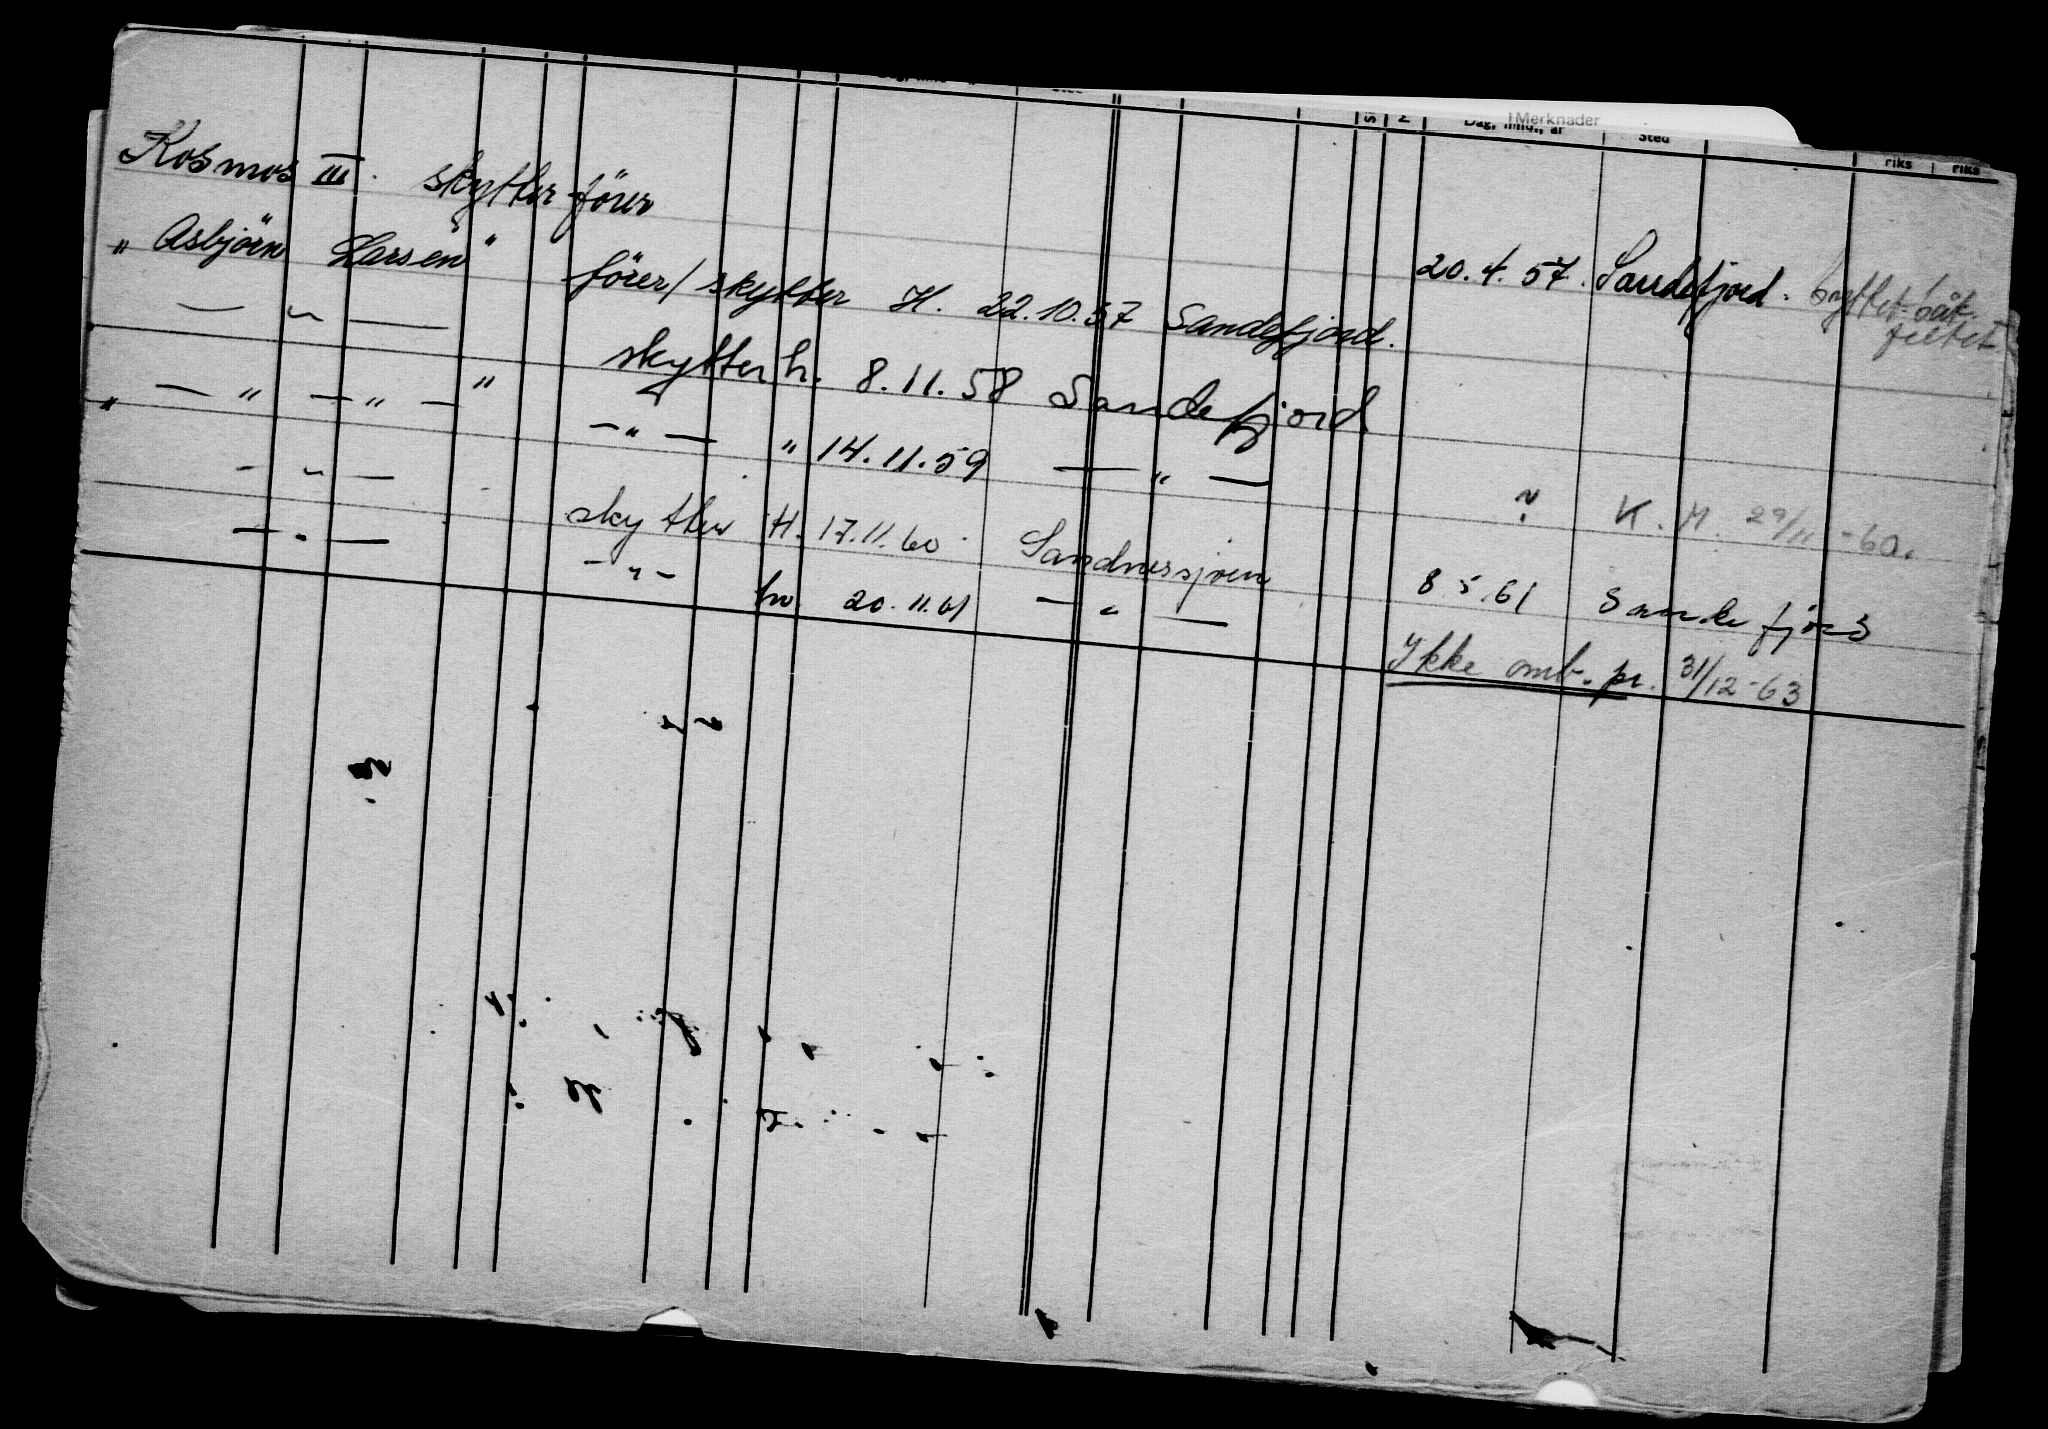 Merknader
Dag, mnd., år Sted riks riks
Kosmos III. skytter fører
" Asbjörn Larsen" fører/skytter H. 22.10.57 Sandefjord. 20.4.57. Sandefjord. byttet båt feltet
— " — skytter h. 8.11.58 Sandefjord
" — " — " — " — " — " 14.11.59 — " —
— " — skytter H. 17.11.60 Sandnessjøen ? K.M. 29/11-60.
— " — — " — hv. 20.11.61 — " — 8.5.61 Sandefjord
Ikke omb. pr. 31/12-63